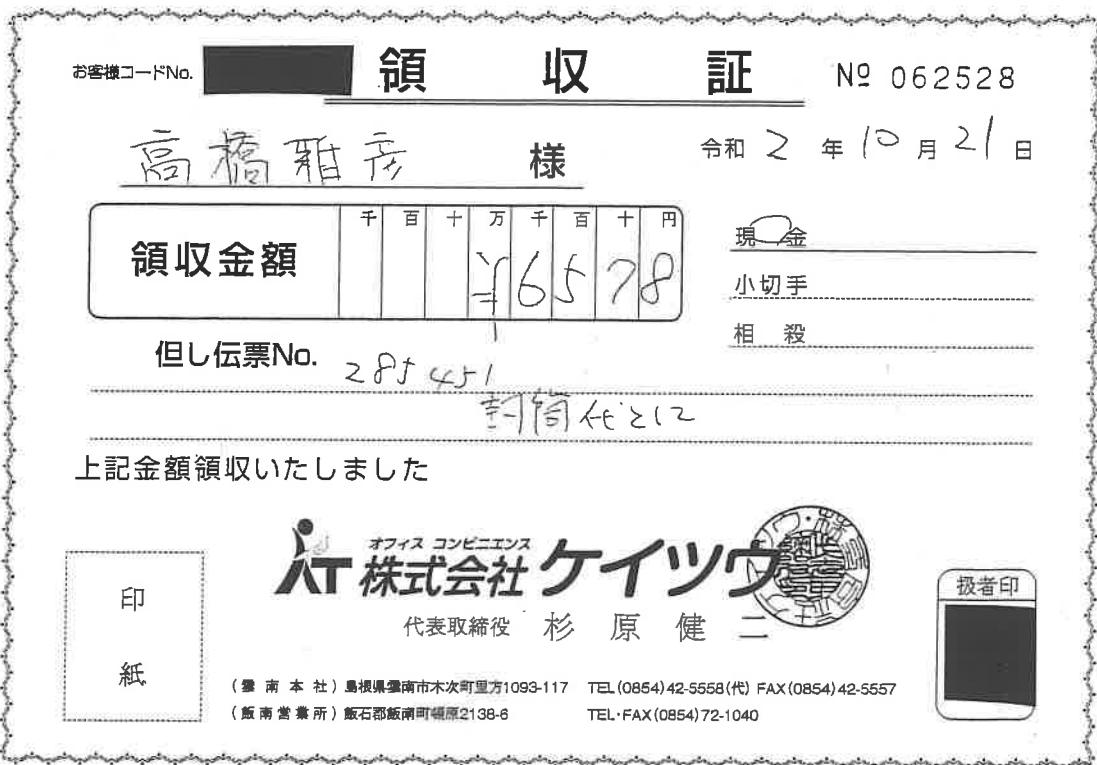 お客様コードNo.
領収証
№ 062528
高橋雅彦 様
令和 2 年 10 月 21 日
領収金額
千 百 十 万 千 百 十 円
¥6578
現金
小切手
相殺
但し伝票No. 285451
封筒代として
上記金額領収いたしました
オフィス コンビニエンス
株式会社 ケイツウ
代表取締役 杉原健二
印紙
扱者印
(雲南本社) 島根県雲南市木次町里方1093-117 TEL(0854)42-5558(代) FAX(0854)42-5557
(飯南営業所) 飯石郡飯南町頓原2138-6 TEL・FAX(0854)72-1040